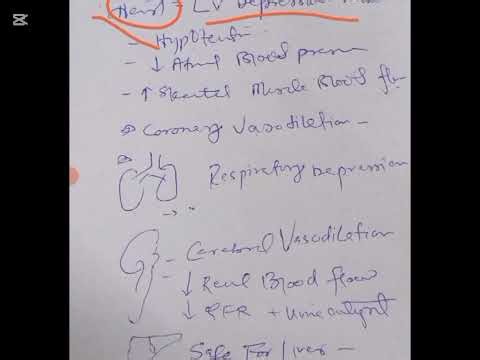 Heart - LV Depression
- Hypotension
- ↓ Atrial Blood pressure
- ↑ Skeletal Muscle Blood flow
Coronery Vasodiletion -
Respiratory Depression
- Cerebral Vasodiletion
↓ Renal Blood flow
↓ GFR + Urine output
Safe For liver -